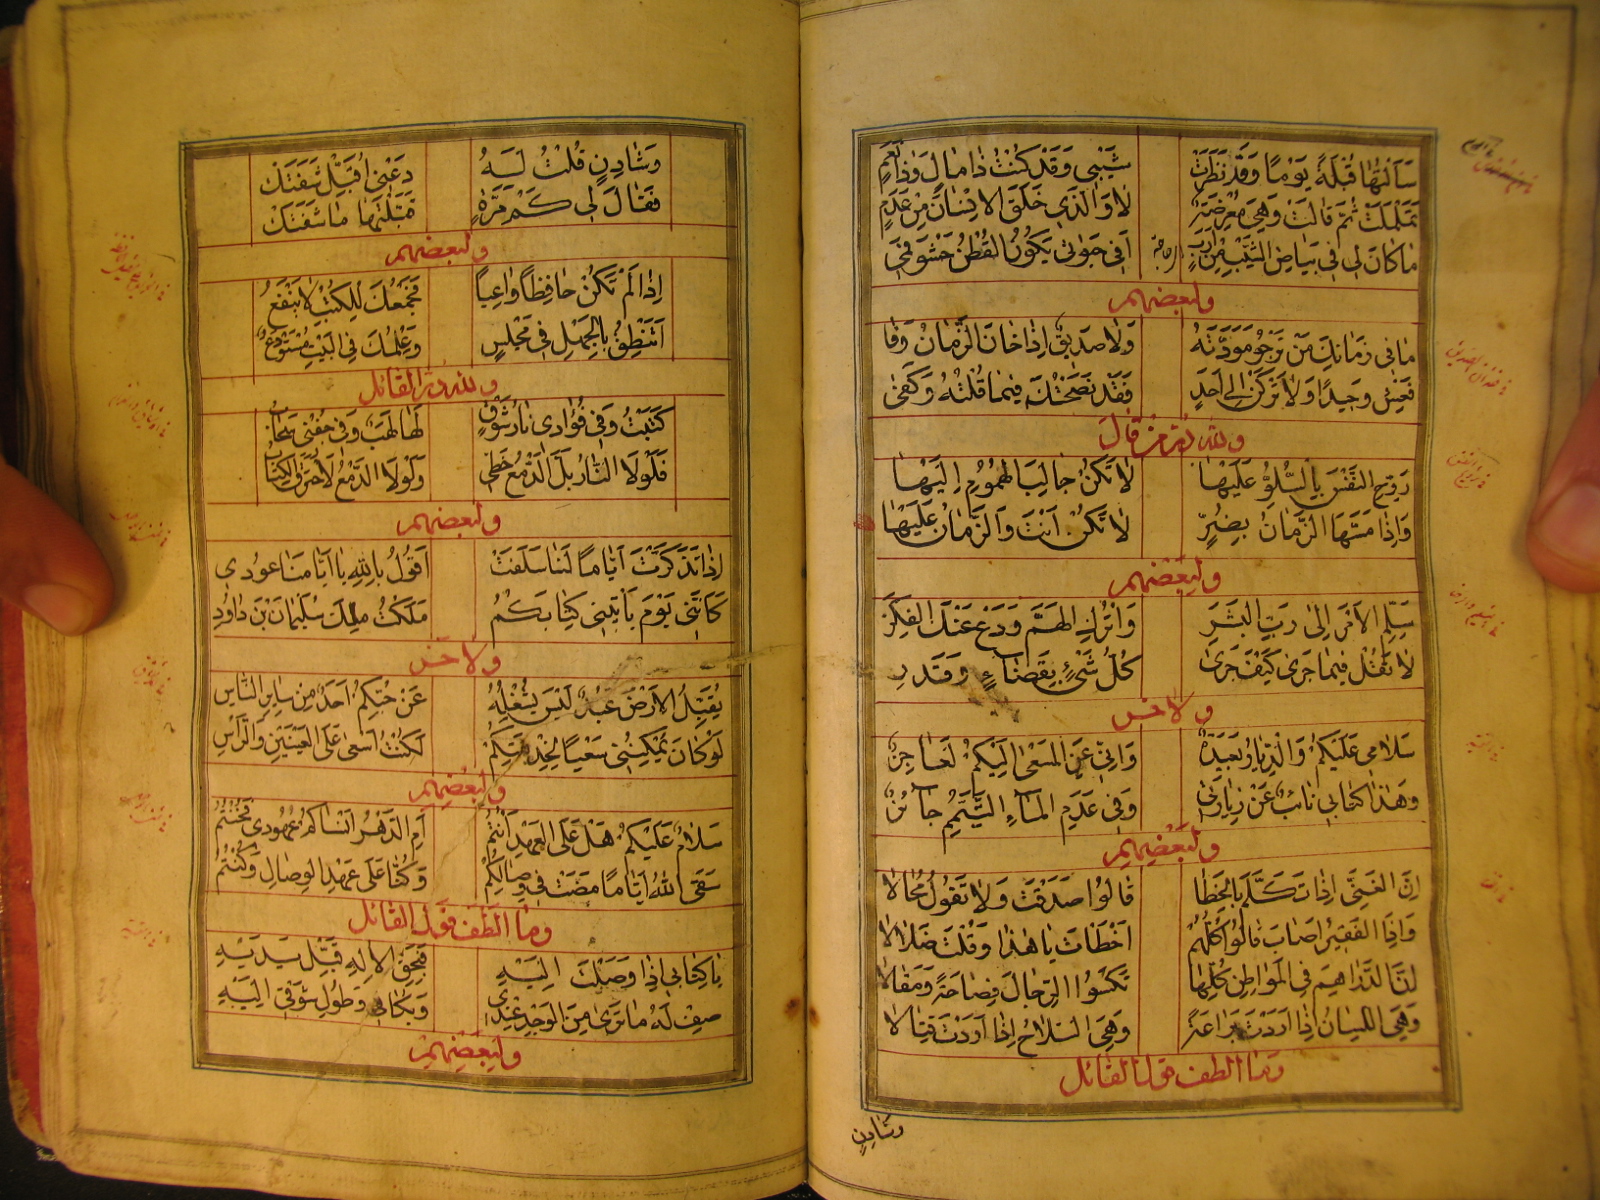 سَاَلْتُهَا قُبْلَةً يَوْمًا وَقَدْ نَظَرَتْ شَيْبِى وَقَدْ كُنْتُ ذَا مَالٍ وَذَا نَعَمٍ
تَمَلْمَلَتْ ثُمَّ قَالَتْ وَهْىَ مُعْرِضَةٌ لَا وَالَّذِى خَلَقَ الْاِنْسَانَ مِنْ عَدَمٍ
مَا كَانَ لِى فِى بَيَاضِ الشَّيْبِ مِنْ اَرَبٍ اَفِى حَيٰوتِى يَكُونُ الْقُطْنُ حَشْوَ فَمِى
ولبعضهم
مَا فِى زَمَانِكَ مَنْ تَرْجُو مَوَدَّتَهُ وَلَا صَدِيقٌ اِذَا خَانَ الزَّمَانُ وَفَا
فَعِشْ وَحِيدًا وَلَا تَرْكَنْ اِلٰى اَحَدٍ فَقَدْ نَصَحْتُكَ فِيمَا قُلْتُهُ وَكَفٰى
ولله در من قال
رَوِّحِ النَّفْسَ بِالسُّلُوِّ عَلَيْهَا لَا تَكُنْ جَالِبَ الْهُمُومِ اِلَيْهَا
وَاِذَا مَسَّهَا الزَّمَانُ بِضُرٍّ لَا تَكُنْ اَنْتَ وَالزَّمَانُ عَلَيْهَا
ولبعضهم
سَلِّمِ الْاَمْرَ اِلٰى رَبِّ الْبَشَرِ وَاتْرُكِ الْهَمَّ وَدَعْ عَنْكَ الْفِكَرْ
لَا تَقُلْ فِيمَا جَرٰى كَيْفَ جَرٰى كُلُّ شَىْءٍ بِقَضَاءٍ وَقَدَرِ
ولاخر
سَلَامِى عَلَيْكُمْ وَالدِّيَارُ بَعِيدَةٌ وَاِنِّى عَنِ الْمَسْعٰى اِلَيْكُمْ لَعَاجِزٌ
وَهٰذَا كِتَابِى نَائِبٌ عَنْ زِيَارَتِى وَفِى عَدَمِ الْمَاءِ التَّيَمُّمُ جَائِزٌ
ولبعضهم
اِنَّ الْغَنِىَّ اِذَا تَكَلَّمَ بِالْخَطَا قَالُوا صَدَقْتَ وَلَا تَقُولُ مُحَالَا
وَاِذَا الْفَقِيرُ اَصَابَ قَالُوا كُلُّهُمْ اَخْطَاْتَ يَا هٰذَا وَقُلْتَ ضَلَالَا
اِنَّ الدَّرَاهِمَ فِى الْمَوَاطِنِ كُلِّهَا تَكْسُوا الرِّجَالَ فَصَاحَةً وَمَقَالَا
وَهْىَ اللِّسَانُ اِذَا اَرَدْتَ بَرَاعَةً وَهْىَ السِّلَاحُ اِذَا اَرَدْتَ قِتَالَا
وما الطف قول القائل
وشادن
وَشَادِنٍ قُلْتُ لَهُ دَعْنِى اُقَبِّلْ شَفَتَكْ
فَقَالَ لِى كَمْ مَرَّةٍ قَبَّلْتَهَا مَا شَفَتَكْ
ولبعضهم
اِذَا لَمْ تَكُنْ حَافِظًا وَاعِيًا فَجَمْعُكَ لِلْكُتْبِ لَا يَنْفَعُ
اَتَنْطِقُ بِالْجَهْلِ فِى مَجْلِسٍ وَعِلْمُكَ فِى الْبَيْتِ مُسْتَوْدَعٌ
ولله در القائل
كَتَبْتُ وَفِى فُؤَادِى نَارُ شَوْقٍ لَهَا لَهَبٌ وَفِى جَفْنِى سَحَابُ
فَلَوْلَا النَّارُ بَلَّ الدَّمْعُ خَطِّى وَلَوْلَا الدَّمْعُ لَاحْتَرَقَ الْكِتَابُ
ولبعضهم
اِذَا تَذَكَّرْتُ اَيَّامًا لَنَا سَلَفَتْ اَقُولُ بِاللّٰهِ يَا اَيَّامَنَا عُودِى
كَاَنَّنِى يَوْمَ يَاْتِينِى كِتَابُكُمُ مَلَكْتُ مُلْكَ سُلَيْمَانَ بْنَ دَاوُدِ
ولاخر
يُقَبِّلُ الْاَرْضَ عَبْدٌ لَيْسَ يُشْغِلُهُ عَنْ حُبِّكُمْ اَحَدٌ مِنْ سَايِرِ النَّاسِ
لَوْ كَانَ يُمْكِنُنِى سَعْيًا لِخِدْمَتِكُمْ لَكُنْتُ اَسْعٰى عَلَى الْعَيْنَيْنِ وَالرَّاْسِ
ولبعضهم
سَلَامٌ عَلَيْكُمْ هَلْ عَلَى الْعَهْدِ اَنْتُمُ اَمِ الدَّهْرُ اَنْسَاكُمْ عُهُودِى فَخُنْتُمُ
سَقَى اللّٰهُ اَيَّامًا مَضَتْ فِى وِصَالِكُمْ وَكُنَّا عَلٰى عَهْدِ الْوِصَالِ وَكُنْتُمُ
وما الطف قول القائل
يَا كِتَابِى اِذَا وَصَلْتَ اِلَيْهِ فَبِحَقِّ الْاِلٰهِ قَبِّلْ يَدَيْهِ
صِفْ لَهُ مَا تَرٰى مِنَ الْوَجْدِ عِنْدِى وَبُكَائِى وَطُولَ شَوْقِى اِلَيْهِ
ولبعضهم